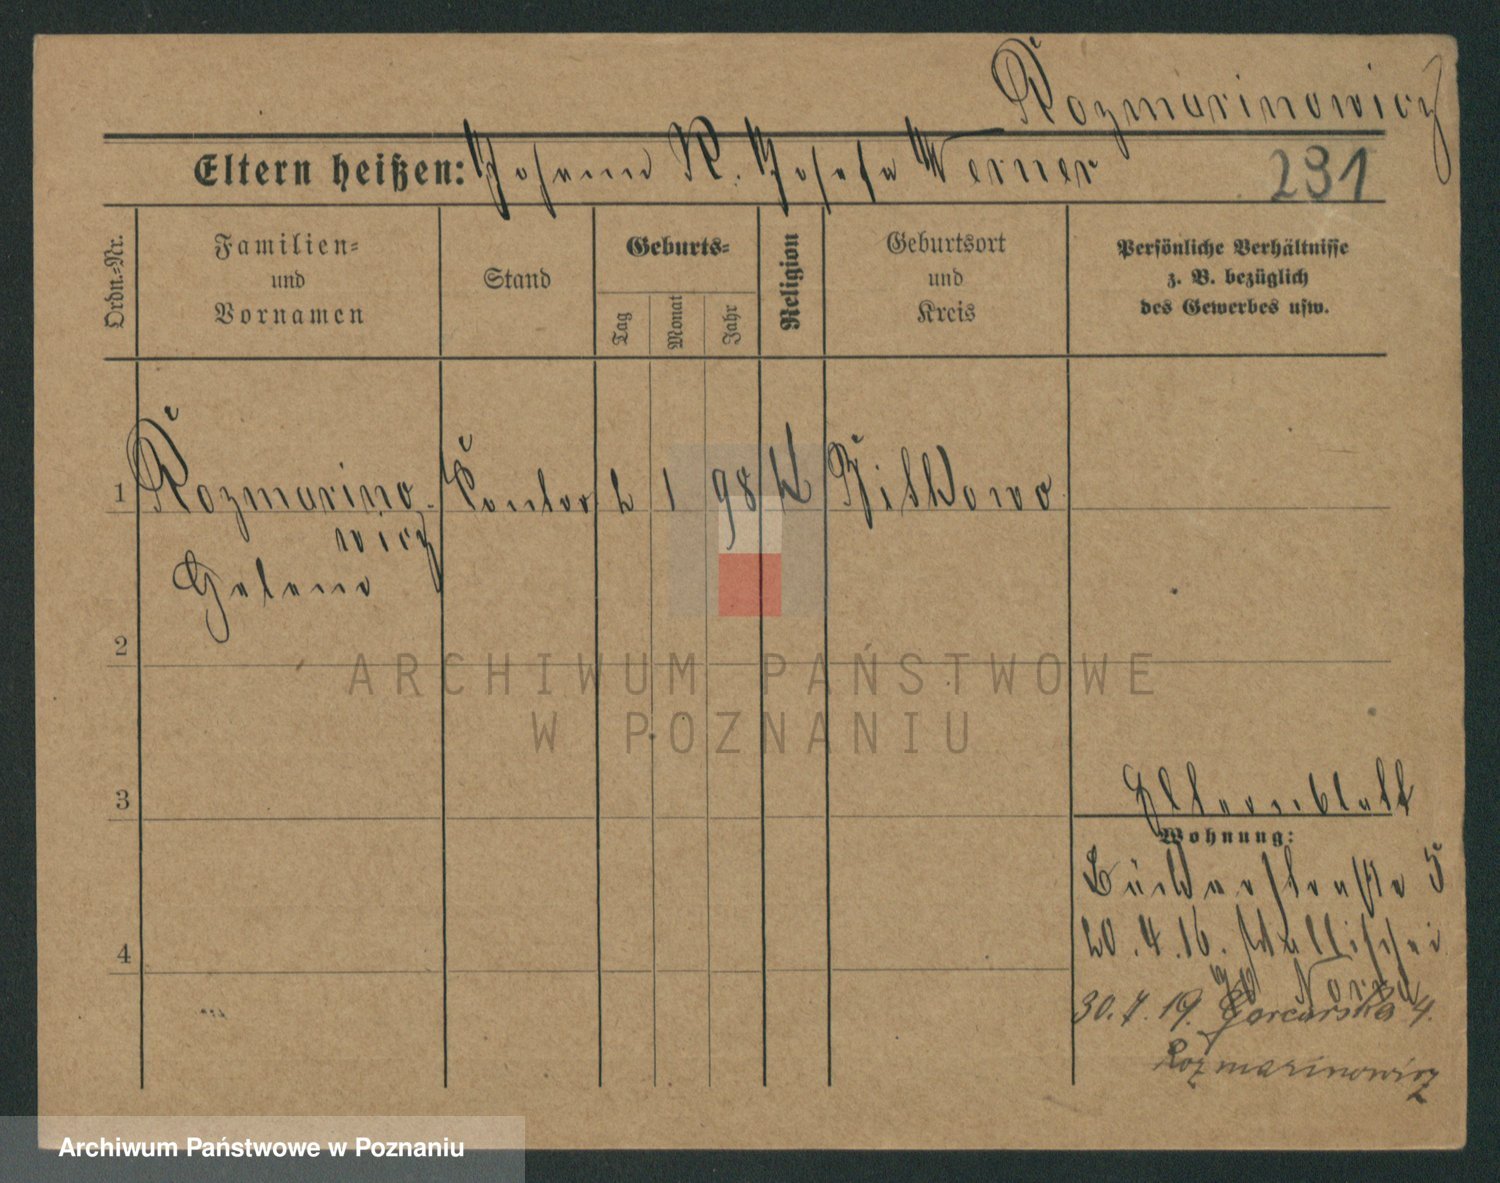 Rozmarinowicz
Eltern heißen: Johann R. Josefa Werner
231
Ordn.=Nr.
Familien=
und
Vornamen
Stand
Geburts=
Tag
Monat
Jahr
Religion
Geburtsort
und
Kreis
Persönliche Verhältnisse
z. B. bezüglich
des Gewerbes usw.
1 Rozmarino
98
wicz
Helene
2
3
4
Elternblatt
Wohnung:
20.4.16. Wallischei
30.7.19. Garcarska 4.
Rozmarinowicz
ARCHIWUM PAŃSTWOWE
W POZNANIU
Archiwum Państwowe w Poznaniu